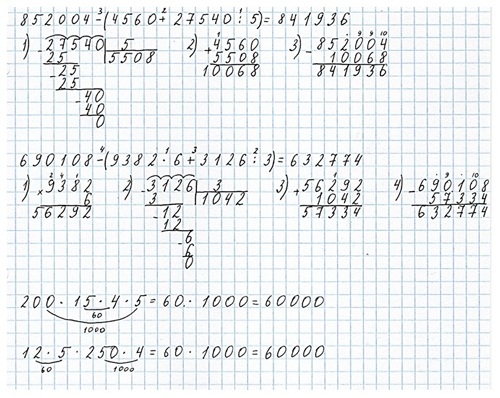 852004-(4560+27540:5)=841936
3 2 1
1) -27540 | 5
25 5508
-25
25
-40
40
0
2) +4560
5508
10068
3) -852004
10068
841936
690108-(9382·6+3126:3)=632774
4 1 3 2
1) ×9382
6
56292
2) -3126 | 3
3 1042
-12
12
-6
6
0
3) +56292
1042
57334
4) -690108
57334
632774
200·15·4·5=60·1000=60000
60
1000
12·5·250·4=60·1000=60000
60 1000